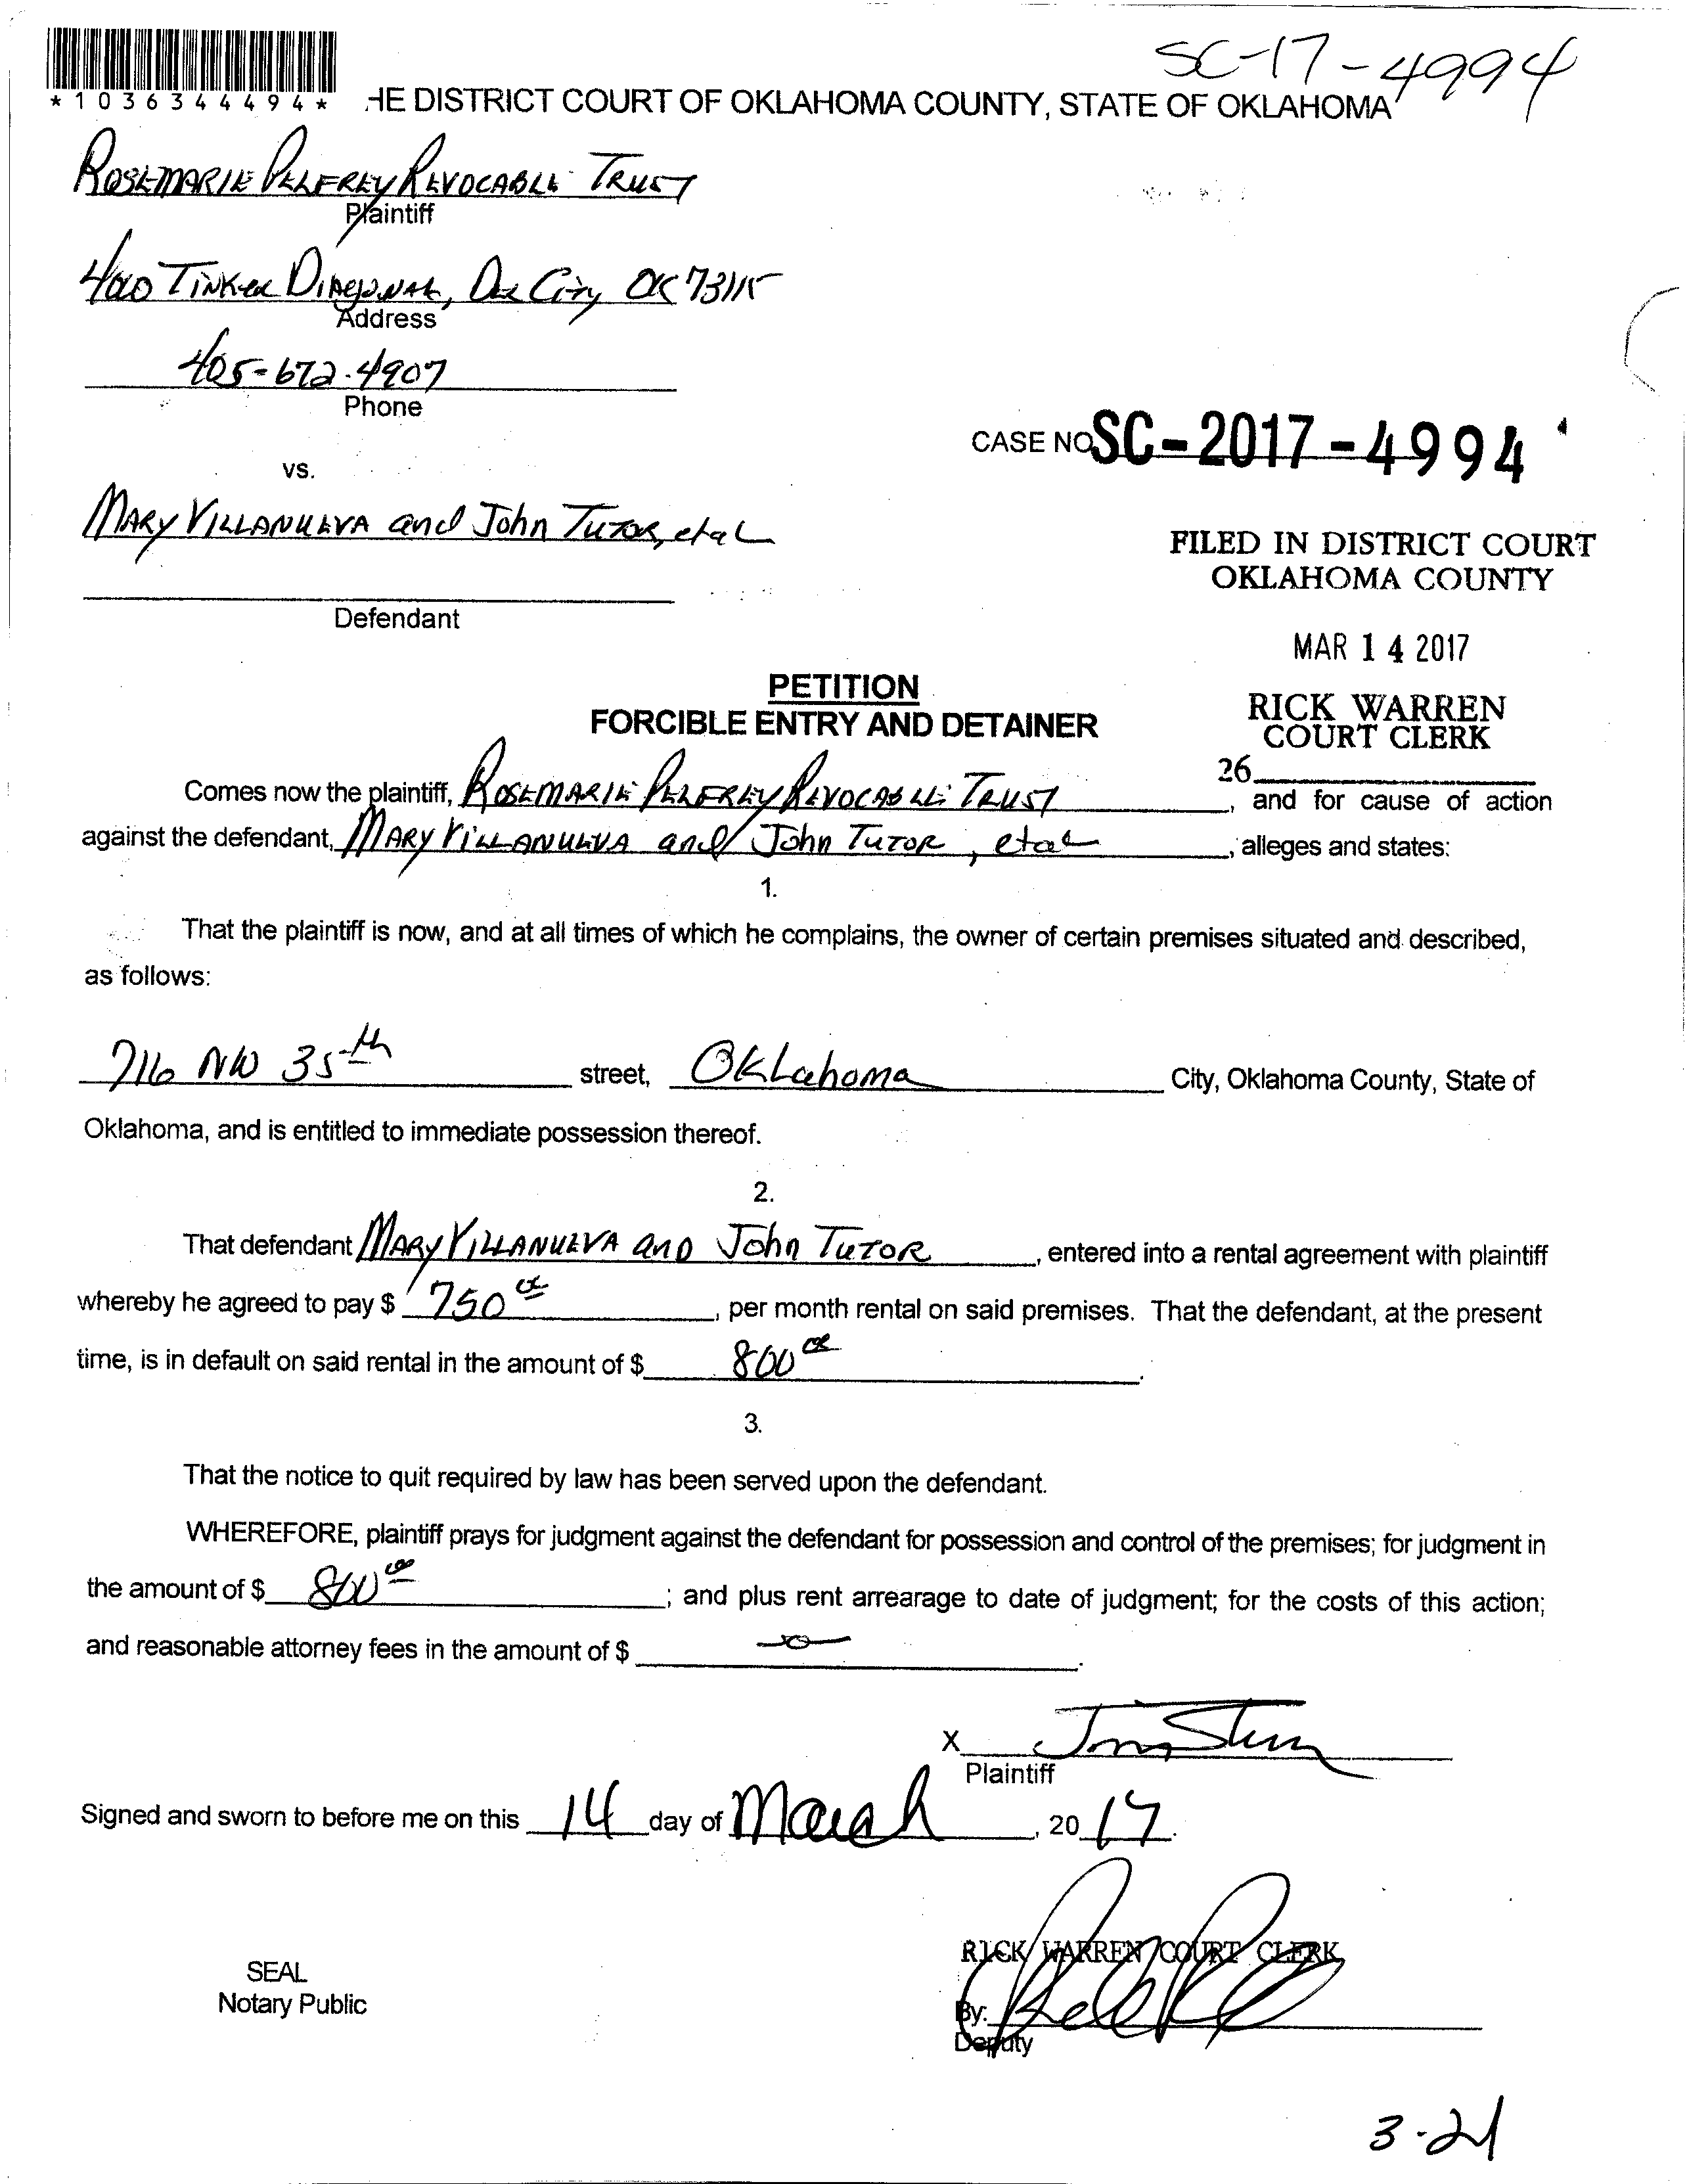 SC-17-4994
*1036344494* HE DISTRICT COURT OF OKLAHOMA COUNTY, STATE OF OKLAHOMA
ROSEMARIE PELFREY REVOCABLE TRUST
Plaintiff
TINKER DIAGONAL, DEL CITY, OK 73115
Address
405-672-4907
Phone
CASE NO SC-2017-4994
vs.
MARY VILLANUEVA and John TUTOR, et al
FILED IN DISTRICT COURT
OKLAHOMA COUNTY
Defendant
MAR 14 2017
PETITION
FORCIBLE ENTRY AND DETAINER
RICK WARREN
COURT CLERK
26
Comes now the plaintiff, ROSEMARIE PELFREY REVOCABLE TRUST, and for cause of action
against the defendant, MARY VILLANUEVA and John TUTOR, et al, alleges and states:
1.
That the plaintiff is now, and at all times of which he complains, the owner of certain premises situated and described,
as follows:
716 NW 35th street, Oklahoma City, Oklahoma County, State of
Oklahoma, and is entitled to immediate possession thereof.
2.
That defendant MARY VILLANUEVA AND John TUTOR, entered into a rental agreement with plaintiff
whereby he agreed to pay $ 750 00, per month rental on said premises. That the defendant, at the present
time, is in default on said rental in the amount of $ 800 00.
3.
That the notice to quit required by law has been served upon the defendant.
WHEREFORE, plaintiff prays for judgment against the defendant for possession and control of the premises; for judgment in
the amount of $ 800 00; and plus rent arrearage to date of judgment; for the costs of this action;
and reasonable attorney fees in the amount of $ -0-.
X
Plaintiff
Signed and sworn to before me on this 14 day of March, 2017.
RICK WARREN COURT CLERK
SEAL
Notary Public
By:
Deputy
3-21